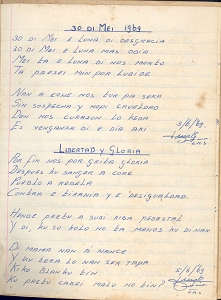 30 DI MEI 1969
30 DI MEI E LUNA DI DESGRACIA
30 DI MEI E LUNA MAS ODIA
MEI TA E LUNA DI NOS MERTO
TA PARSEI MIN POR LUBIDE
NAN A CONE NOS TUR PA SERA
SIN SOSPECHA Y HOPI CRUELDAD
DEN NOS CURAZON LO KEDA
ES VENGANSA DI E DIA ARI
3/6/69
LIBERTAD Y GLORIA
POR FIN NOS POR GRITA GLORIA
DESPUES KU SANGER A CORE
PUEBLO A REBELA
CONTRA E TIRANIA Y E DESIGUALDAD
HENDE PRETU A SUBI RIBA PEDESTAL
Y DI, KU SU KOLO NO TA MENOS KU DI NAN
DI MAMA NAN A NANCE
Y UU TERA LO NAN SER TAPA
KIKO BLANKU BIN
KU PRETU CAREI MALU NO BIN?
5/6/69